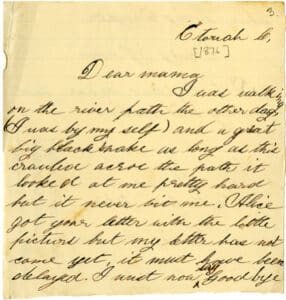 3.
Etowah C,
[1876]
Dear mama
I was walking
on the river path the other day
(I was by my self) and a great
big black snake as long as this
crauled acroc the path it
looked at me pretty hard
but it never bit me. Alice
got your letter with the little
picture but my letter has not
come yet, it must have been
delayed. I must now say good bye